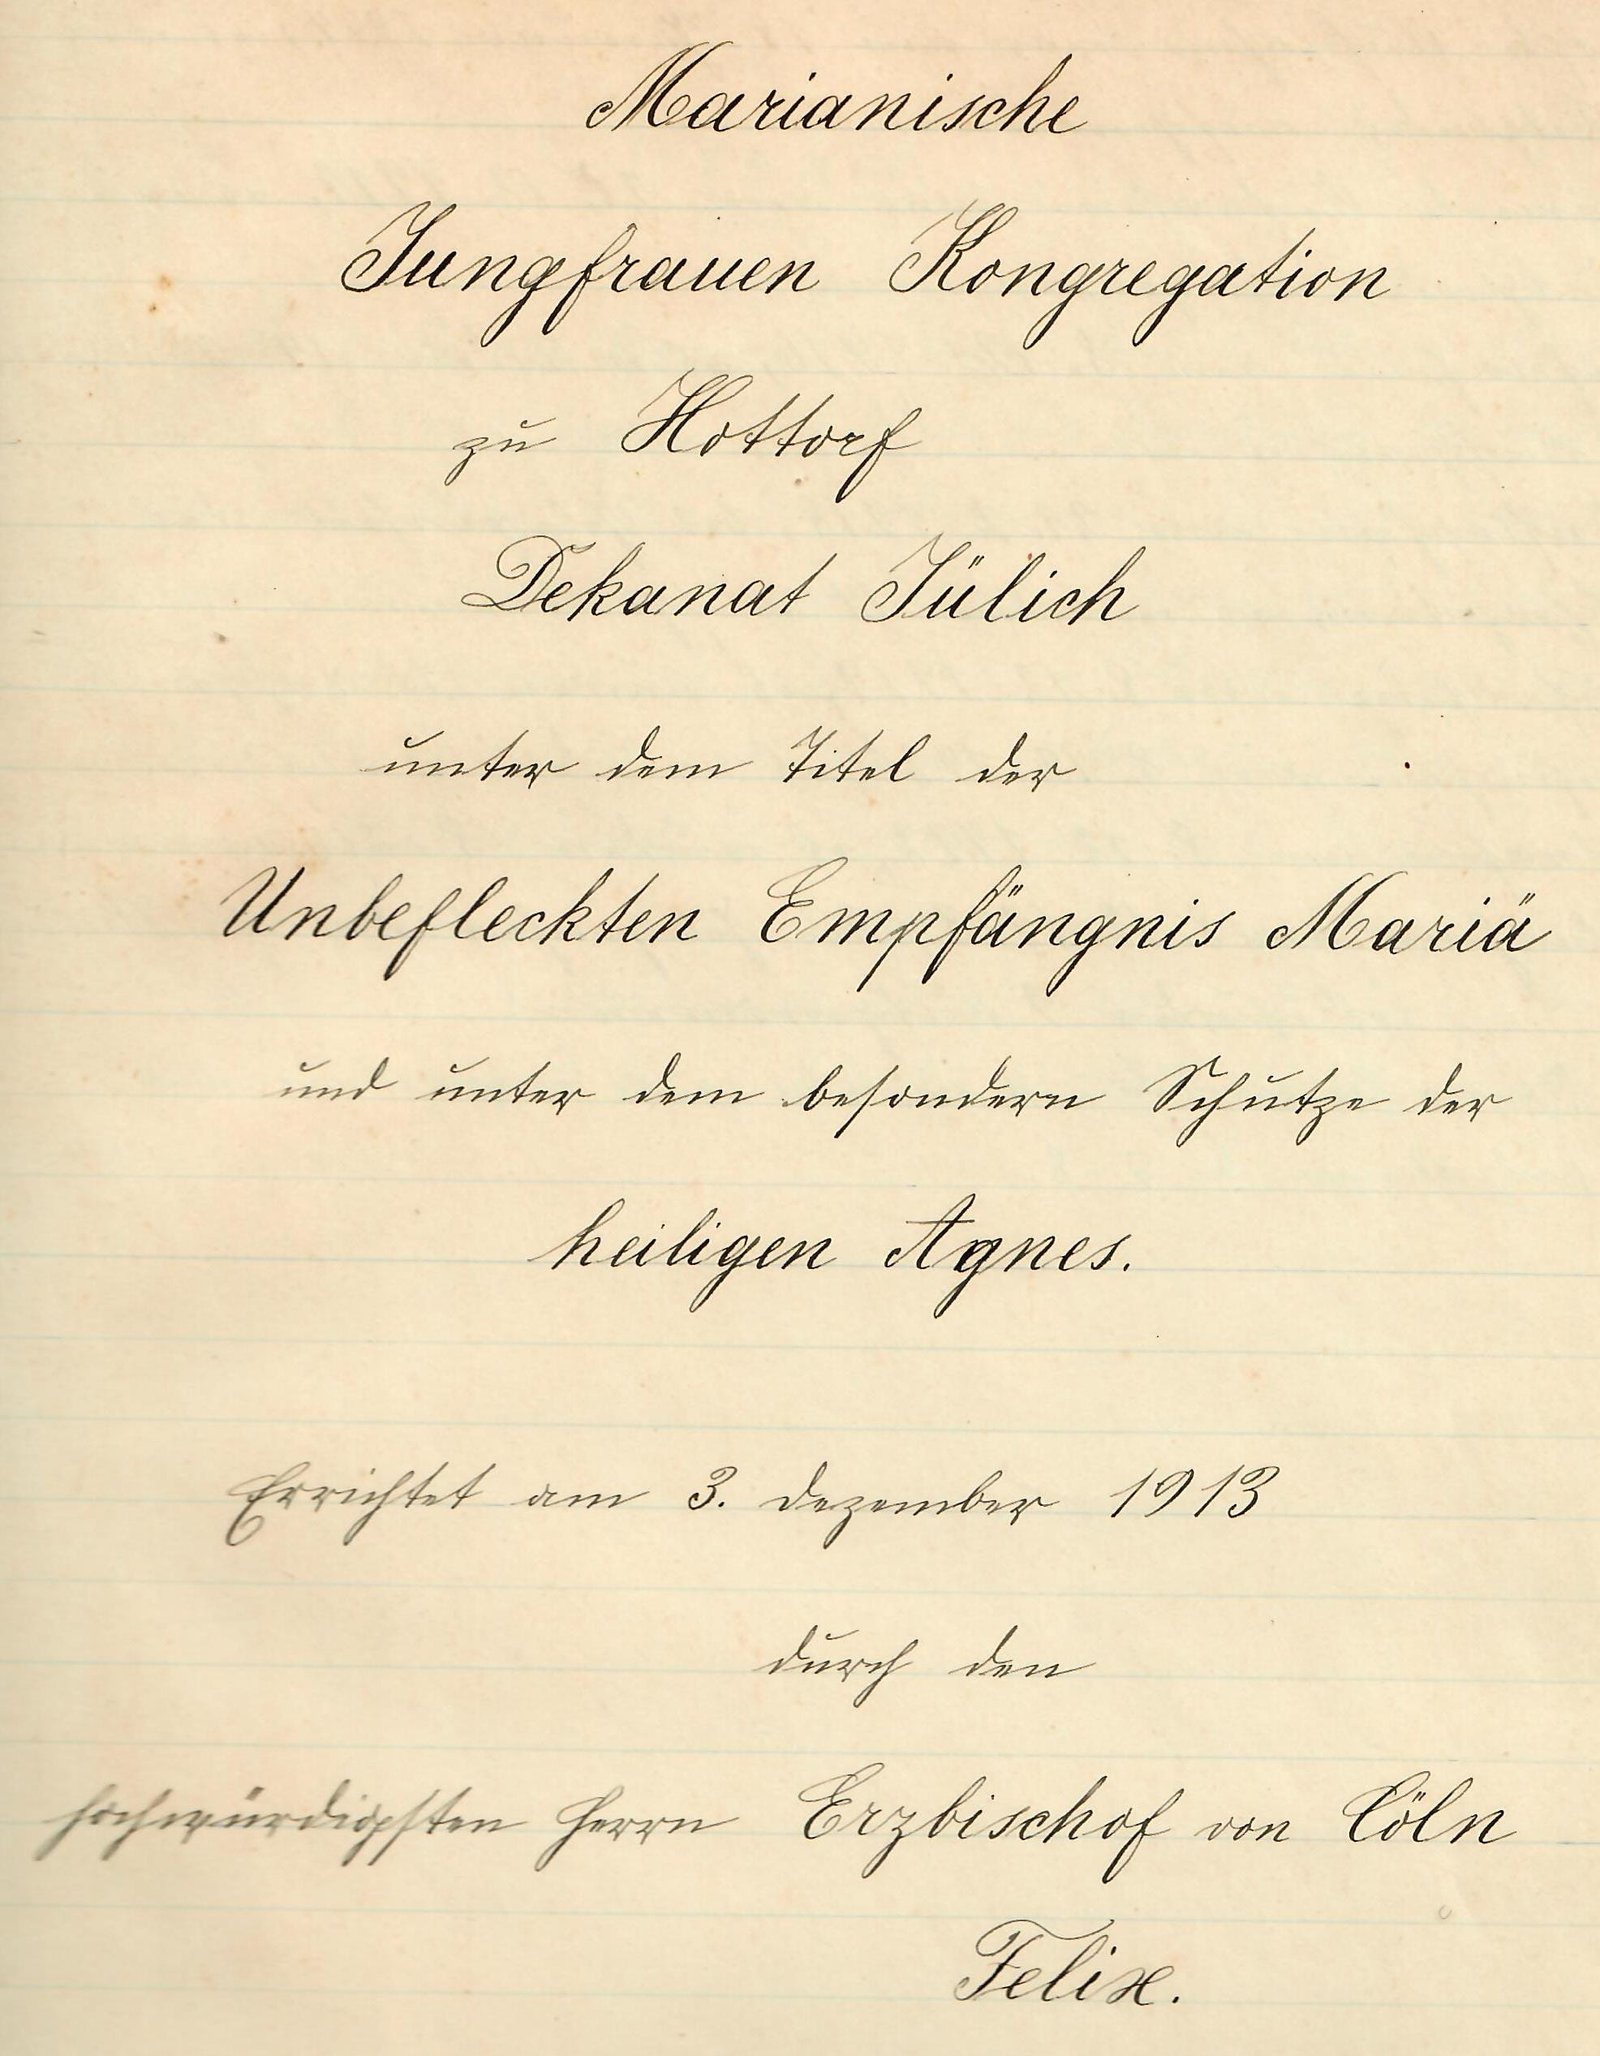 Marianische
Jungfrauen Kongregation
zu Hottorf
Dekanat Jülich
unter dem Titel der
Unbefleckten Empfängnis Mariä
und unter dem besondern Schutze der
heiligen Agnes.
Errichtet am 3. Dezember 1913
durch den
hochwürdigsten Herrn Erzbischof von Cöln
Felix.